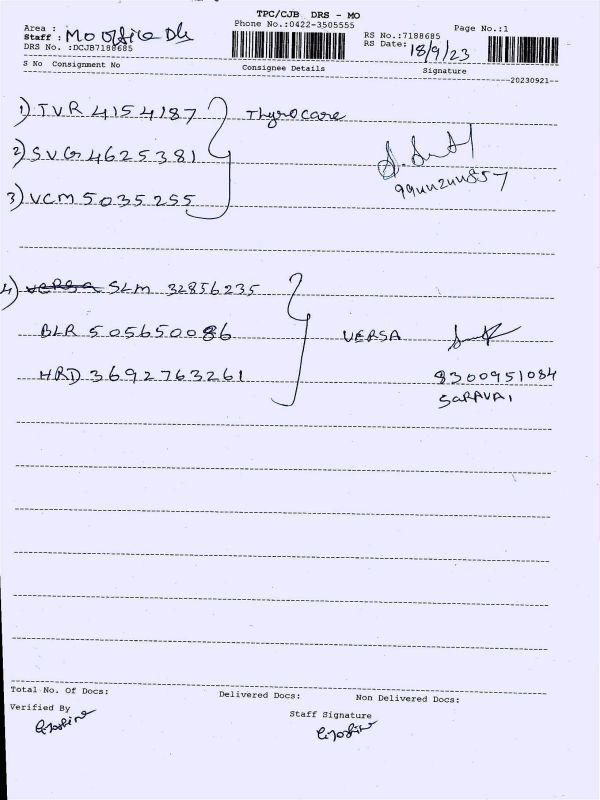 TPC/CJB DRS - MO
Phone No.:0422-3505555
Page No.:1
Area :
Staff : Mo office Dls
DRS No. :DCJB7188685
RS No.:7188685
RS Date: 18/9/23
S No Consignment No Consignee Details Signature
20230921
1) TVR 4154187 Thyrocare
2) SVG 4625381
3) VCM 5035255
4) SLM 32856235
BLR 505650086 VERSA
HRD 3692763261 8300951084
SARAVAI
Total No. Of Docs: Delivered Docs: Non Delivered Docs:
Verified By
Staff Signature